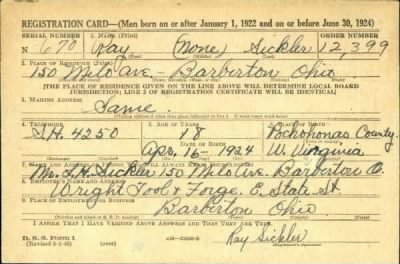 REGISTRATION CARD—(Men born on or after January 1, 1922 and on or before June 30, 1924)
SERIAL NUMBER 1. NAME (Print) ORDER NUMBER
N 670 Ray (None) Sickler 12,399
(First) (Middle) (Last)
2. PLACE OF RESIDENCE
150 Milo Ave. - Barberton Ohio
[THE PLACE OF RESIDENCE GIVEN ON THE LINE ABOVE WILL DETERMINE LOCAL BOARD
JURISDICTION; LINE 2 OF REGISTRATION CERTIFICATE WILL BE IDENTICAL]
3. MAILING ADDRESS
Same.
4. TELEPHONE 5. AGE IN YEARS 6. PLACE OF BIRTH
S.H. 4250 18 Pochohonas County
DATE OF BIRTH
Apr. 16 - 1924 W. Virginia
7. NAME AND ADDRESS OF PERSON WHO WILL ALWAYS KNOW YOUR ADDRESS
Mr. L.H. Sickler 150 Milo Ave. Barberton O.
8. EMPLOYER'S NAME AND ADDRESS
Wright Tool & Forge. E. State St.
9. PLACE OF EMPLOYMENT OR BUSINESS
Barberton Ohio
I AFFIRM THAT I HAVE VERIFIED ABOVE ANSWERS AND THAT THEY ARE TRUE.
D. S. S. FORM 1
Ray Sickler